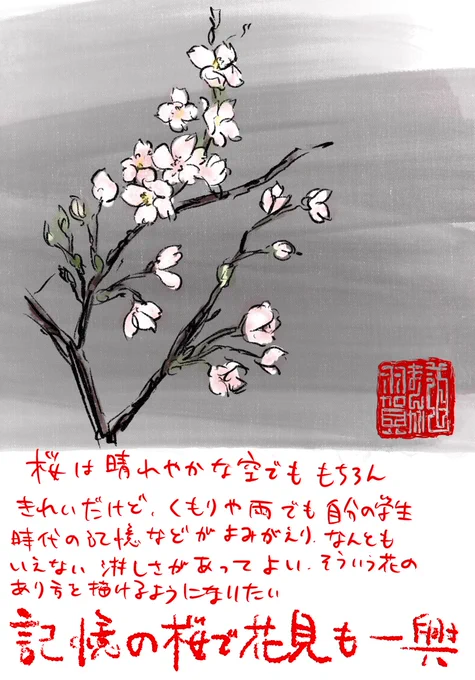 桜は晴れやかな空でももちろん
きれいだけど、くもりや雨でも自分の学生
時代の記憶などがよみがえり、なんとも
いえない淋しさがあってよい。そういう花の
あり方を描けるようになりたい
記憶の桜で花見も一興